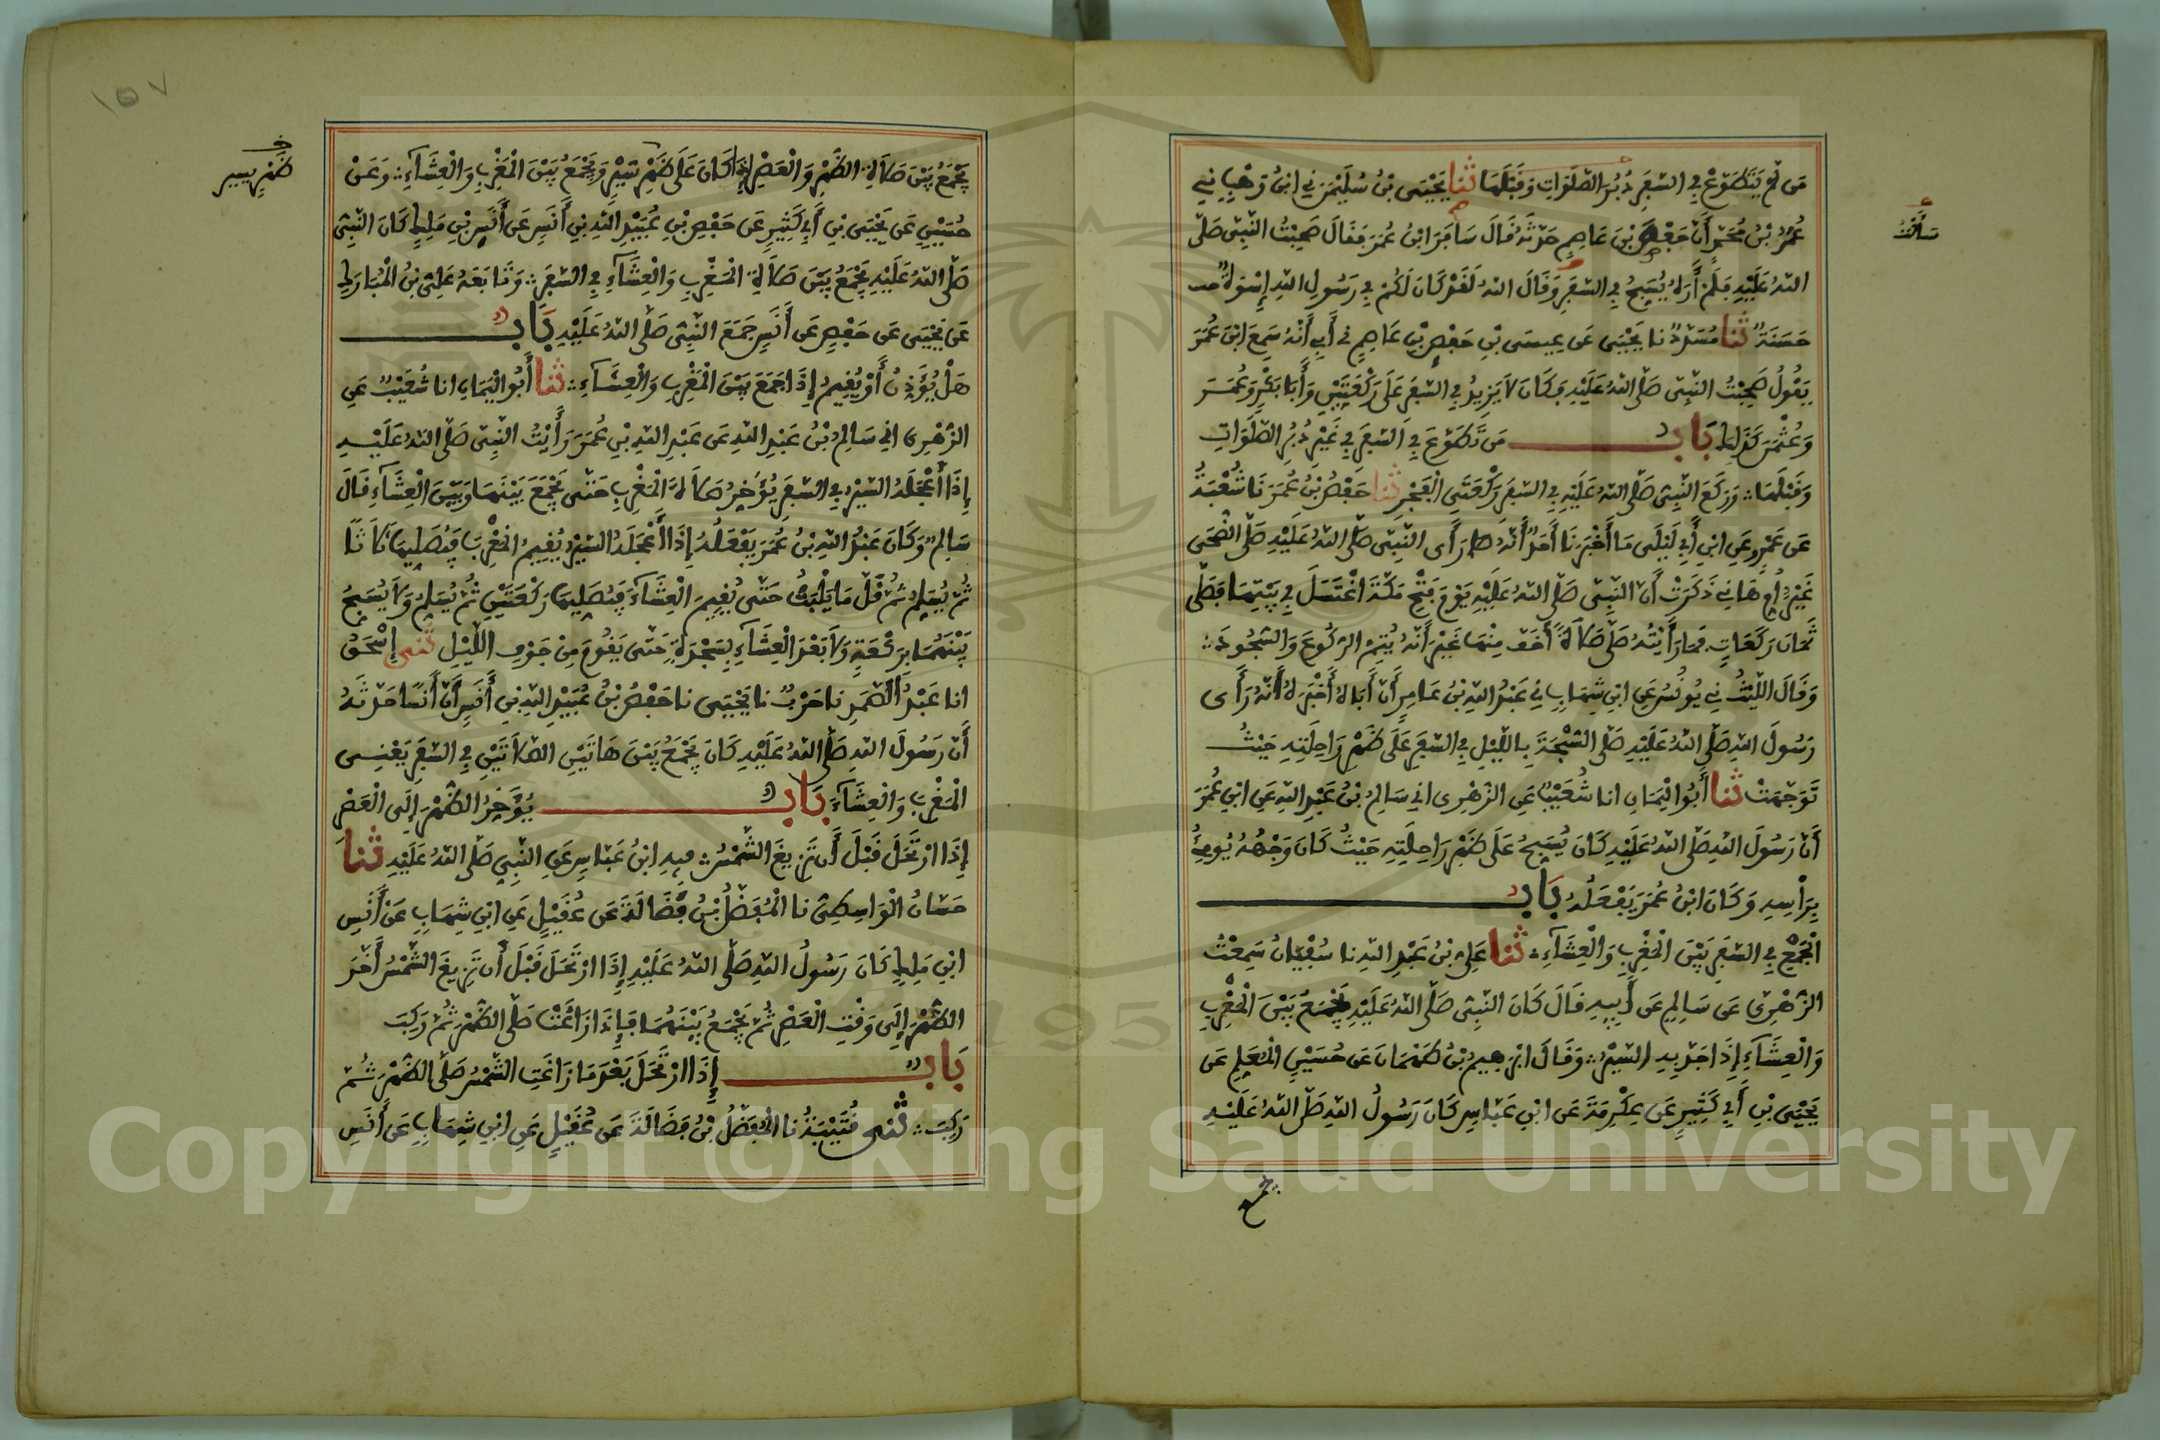 سَأَلْتُ
مَن لَّمْ يَتَطَوَّعْ فِي السَّفَرِ دُبُرَ الصَّلَوَاتِ وَقَبْلَهَا ثنا يَحْيَى بْنُ سُلَيْمَنَ نِي ابْنُ وَهْبٍ نِي
عُمَرُ بْنُ مُحَمَّدٍ أَنَّ حَفْصَ بْنَ عَاصِمٍ حَدَّثَهُ قَالَ سَافَرَ ابْنُ عُمَرَ فَقَالَ صَحِبْتُ النَّبِيَّ صَلَّى
اللَّهُ عَلَيْهِ فَلَمْ أَرَهُ يُسَبِّحُ فِي السَّفَرِ وَقَالَ اللَّهُ لَقَدْ كَانَ لَكُمْ فِي رَسُولِ اللَّهِ إِسْوَةٌ
حَسَنَةٌ ثنا مُسَدَّدٌ نا يَحْيَى عَن عِيسَى بْنِ حَفْصِ بْنِ عَاصِمٍ نِي أَبِي أَنَّهُ سَمِعَ ابْنَ عُمَرَ
يَقُولُ صَحِبْتُ النَّبِيَّ صَلَّى اللَّهُ عَلَيْهِ فَكَانَ لَا يَزِيدُ فِي السَّفَرِ عَلَى رَكْعَتَيْنِ وَأَبَا بَكْرٍ وَعُمَرَ
وَعُثْمَنَ كَذَلِكَ بَابُ مَن تَطَوَّعَ فِي السَّفَرِ فِي غَيْرِ دُبُرِ الصَّلَوَاتِ
وَقَبْلَهَا وَرَكَعَ النَّبِيُّ صَلَّى اللَّهُ عَلَيْهِ فِي السَّفَرِ رَكْعَتَيِ الْفَجْرِ ثنا حَفْصُ بْنُ عُمَرَ نَا شُعْبَةُ
عَن عَمْرٍو عَنِ ابْنِ أَبِي لَيْلَى مَا أَخْبَرَنَا أَحَدٌ أَنَّهُ رَأَى النَّبِيَّ صَلَّى اللَّهُ عَلَيْهِ صَلَّى الضُّحَى
غَيْرُ أُمِّ هَانِئٍ ذَكَرَتْ أَنَّ النَّبِيَّ صَلَّى اللَّهُ عَلَيْهِ يَوْمَ فَتْحِ مَكَّةَ اغْتَسَلَ فِي بَيْتِهَا فَصَلَّى
ثَمَانَ رَكَعَاتٍ فَمَا رَأَيْتُهُ صَلَّى صَلَاةً أَخَفَّ مِنْهَا غَيْرَ أَنَّهُ يُتِمُّ الرُّكُوعَ وَالسُّجُودَ
وَقَالَ اللَّيْثُ نِي يُونُسُ عَنِ ابْنِ شِهَابٍ نِي عَبْدُ اللَّهِ بْنُ عَامِرٍ أَنَّ أَبَاهُ أَخْبَرَهُ أَنَّهُ رَأَى
رَسُولَ اللَّهِ صَلَّى اللَّهُ عَلَيْهِ صَلَّى السُّبْحَةَ بِاللَّيْلِ فِي السَّفَرِ عَلَى ظَهْرِ رَاحِلَتِهِ حَيْثُ
تَوَجَّهَتْ ثنا أَبُو الْيَمَانِ انا شُعَيْبٌ عَنِ الزُّهْرِي انِي سَالِمُ بْنُ عَبْدِ اللَّهِ عَنِ ابْنِ عُمَرَ
أَنَّ رَسُولَ اللَّهِ صَلَّى اللَّهُ عَلَيْهِ كَانَ يُسَبِّحُ عَلَى ظَهْرِ رَاحِلَتِهِ حَيْثُ كَانَ وَجْهُهُ يُومِئُ
بِرَأْسِهِ وَكَانَ ابْنُ عُمَرَ يَفْعَلُهُ بَابُ
الْجَمْعِ فِي السَّفَرِ بَيْنَ الْمَغْرِبِ وَالْعِشَاءِ ثنا عَلِيُّ بْنُ عَبْدِ اللَّهِ نا سُفْيَانُ سَمِعْتُ
الزُّهْرِيَّ عَن سَالِمٍ عَن أَبِيهِ قَالَ كَانَ النَّبِيُّ صَلَّى اللَّهُ عَلَيْهِ يَجْمَعُ بَيْنَ الْمَغْرِبِ
وَالْعِشَاءِ إِذَا جَدَّ بِهِ السَّيْرُ وَقَالَ ابْرَهِيمُ بْنُ طَهْمَانَ عَن حُسَيْنٍ الْمُعَلِّمِ عَن
يَحْيَى بْنِ أَبِي كَثِيرٍ عَن عِكْرِمَةَ عَنِ ابْنِ عَبَّاسٍ كَانَ رَسُولُ اللَّهِ صَلَّى اللَّهُ عَلَيْهِ
يجمع
١٥٧
ظَهْرِ يسير
يَجْمَعُ بَيْنَ صَلَاةِ الظُّهْرِ وَالْعَصْرِ إِذَا كَانَ عَلَى ظَهْرِ سَيْرٍ وَيَجْمَعُ بَيْنَ الْمَغْرِبِ وَالْعِشَاءِ وَعَنْ
حُسَيْنٍ عَن يَحْيَى بْنِ أَبِي كَثِيرٍ عَن حَفْصِ بْنِ عُبَيْدِ اللَّهِ بْنِ أَنَسٍ عَن أَنَسِ بْنِ مَلِكٍ كَانَ النَّبِيُّ
صَلَّى اللَّهُ عَلَيْهِ يَجْمَعُ بَيْنَ صَلَاةِ الْمَغْرِبِ وَالْعِشَاءِ فِي السَّفَرِ وَتَابَعَهُ عَلِيُّ بْنُ الْمُبَارَكِ
عَن يَحْيَى عَن حَفْصٍ عَن أَنَسٍ جَمَعَ النَّبِيُّ صَلَّى اللَّهُ عَلَيْهِ بَابٌ
هَلْ يُؤَذِّنُ أَوْ يُقِيمُ إِذَا جَمَعَ بَيْنَ الْمَغْرِبِ وَالْعِشَاءِ ثنا أَبُو الْيَمَانِ انا شُعَيْبٌ عَنِ
الزُّهْرِي انِي سَالِمُ بْنُ عَبْدِ اللَّهِ عَن عَبْدِ اللَّهِ بْنِ عُمَرَ رَأَيْتُ النَّبِيَّ صَلَّى اللَّهُ عَلَيْهِ
إِذَا أَعْجَلَهُ السَّيْرُ فِي السَّفَرِ يُؤَخِّرُ صَلَاةَ الْمَغْرِبِ حَتَّى يَجْمَعَ بَيْنَهَا وَبَيْنَ الْعِشَاءِ قَالَ
سَالِمٌ وَكَانَ عَبْدُ اللَّهِ بْنُ عُمَرَ يَفْعَلُهُ إِذَا أَعْجَلَهُ السَّيْرُ يُقِيمُ الْمَغْرِبَ فَيُصَلِّيهَا ثَلَاثًا
ثُمَّ يُسَلِّمُ ثُمَّ قَلَّ مَا يَلْبَثُ حَتَّى يُقِيمَ الْعِشَاءَ فَيُصَلِّيهَا رَكْعَتَيْنِ ثُمَّ يُسَلِّمُ وَلَا يُسَبِّحُ
بَيْنَهُمَا بِرَكْعَةٍ وَلَا بَعْدَ الْعِشَاءِ بِسَجْدَةٍ حَتَّى يَقُومَ مِنْ جَوْفِ اللَّيْلِ ثنى إِسْحَقُ
انا عَبْدُ الصَّمَدِ نا حَرْبٌ نا يَحْيَى نا حَفْصُ بْنُ عُبَيْدِ اللَّهِ بْنِ أَنَسٍ أَنَّ أَنَسًا حَدَّثَهُ
أَنَّ رَسُولَ اللَّهِ صَلَّى اللَّهُ عَلَيْهِ كَانَ يَجْمَعُ بَيْنَ هَاتَيْنِ الصَّلَاتَيْنِ فِي السَّفَرِ يَعْنِي
الْمَغْرِبَ وَالْعِشَاءَ بَابٌ يُؤَخِّرُ الظُّهْرَ إِلَى الْعَصْرِ
إِذَا ارْتَحَلَ قَبْلَ أَن تَزِيغَ الشَّمْسُ فِيهِ ابْنُ عَبَّاسٍ عَنِ النَّبِيِّ صَلَّى اللَّهُ عَلَيْهِ ثنا
حَسَّانُ الْوَاسِطِيُّ نا الْمُفَضَّلُ بْنُ فَضَالَةَ عَن عُقَيْلٍ عَنِ ابْنِ شِهَابٍ عَنْ أَنَسِ
ابْنِ مَلِكٍ كَانَ رَسُولُ اللَّهِ صَلَّى اللَّهُ عَلَيْهِ إِذَا ارْتَحَلَ قَبْلَ أَن تَزِيغَ الشَّمْسُ أَخَّرَ
الظُّهْرَ إِلَى وَقْتِ الْعَصْرِ ثُمَّ يَجْمَعُ بَيْنَهُمَا فَإِذَا زَاغَتْ صَلَّى الظُّهْرَ ثُمَّ رَكِبَ
بَابٌ إِذَا ارْتَحَلَ بَعْدَ مَا زَاغَتِ الشَّمْسُ صَلَّى الظُّهْرَ ثُمَّ
رَكِبَ ثنى قُتَيْبَةُ نا الْمُفَضَّلُ بْنُ فَضَالَةَ عَن عُقَيْلٍ عَنِ ابْنِ شِهَابٍ عَن أَنَسِ
1957
Copyright © King Saud University